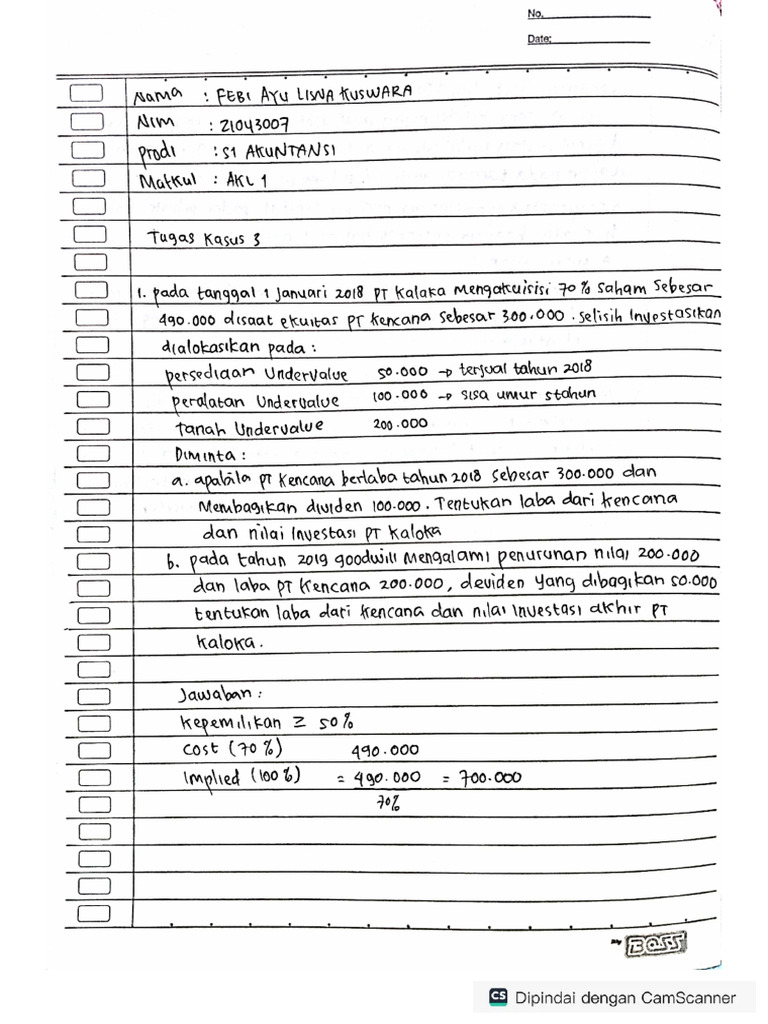 No.
Date:
Nama : FEBI AYU LISNA KUSWARA
Nim : 21043007
Prodi : S1 AKUNTANSI
Matkul : AKL 1
Tugas Kasus 3
1. pada tanggal 1 Januari 2018 PT Kalaka Mengakuisisi 70% saham sebesar
490.000 disaat ekuitas PT Kencana sebesar 300.000. selisih Investasikan
dialokasikan pada :
persediaan Undervalue 50.000 → terjual tahun 2018
peralatan Undervalue 100.000 → sisa umur 5tahun
tanah Undervalue 200.000
Diminta :
a. apabila PT Kencana berlaba tahun 2018 sebesar 300.000 dan
Membagikan dividen 100.000. Tentukan laba dari kencana
dan nilai Investasi PT Kaloka
b. pada tahun 2019 goodwill Mengalami penurunan nilai 200.000
dan laba PT Kencana 200.000, deviden yang dibagikan 50.000
tentukan laba dari kencana dan nilai Investasi akhir PT
Kaloka.
Jawaban :
Kepemilikan ≥ 50%
Cost (70%) 490.000
Implied (100%) = 490.000 = 700.000
70%
BOSS
CS Dipindai dengan CamScanner